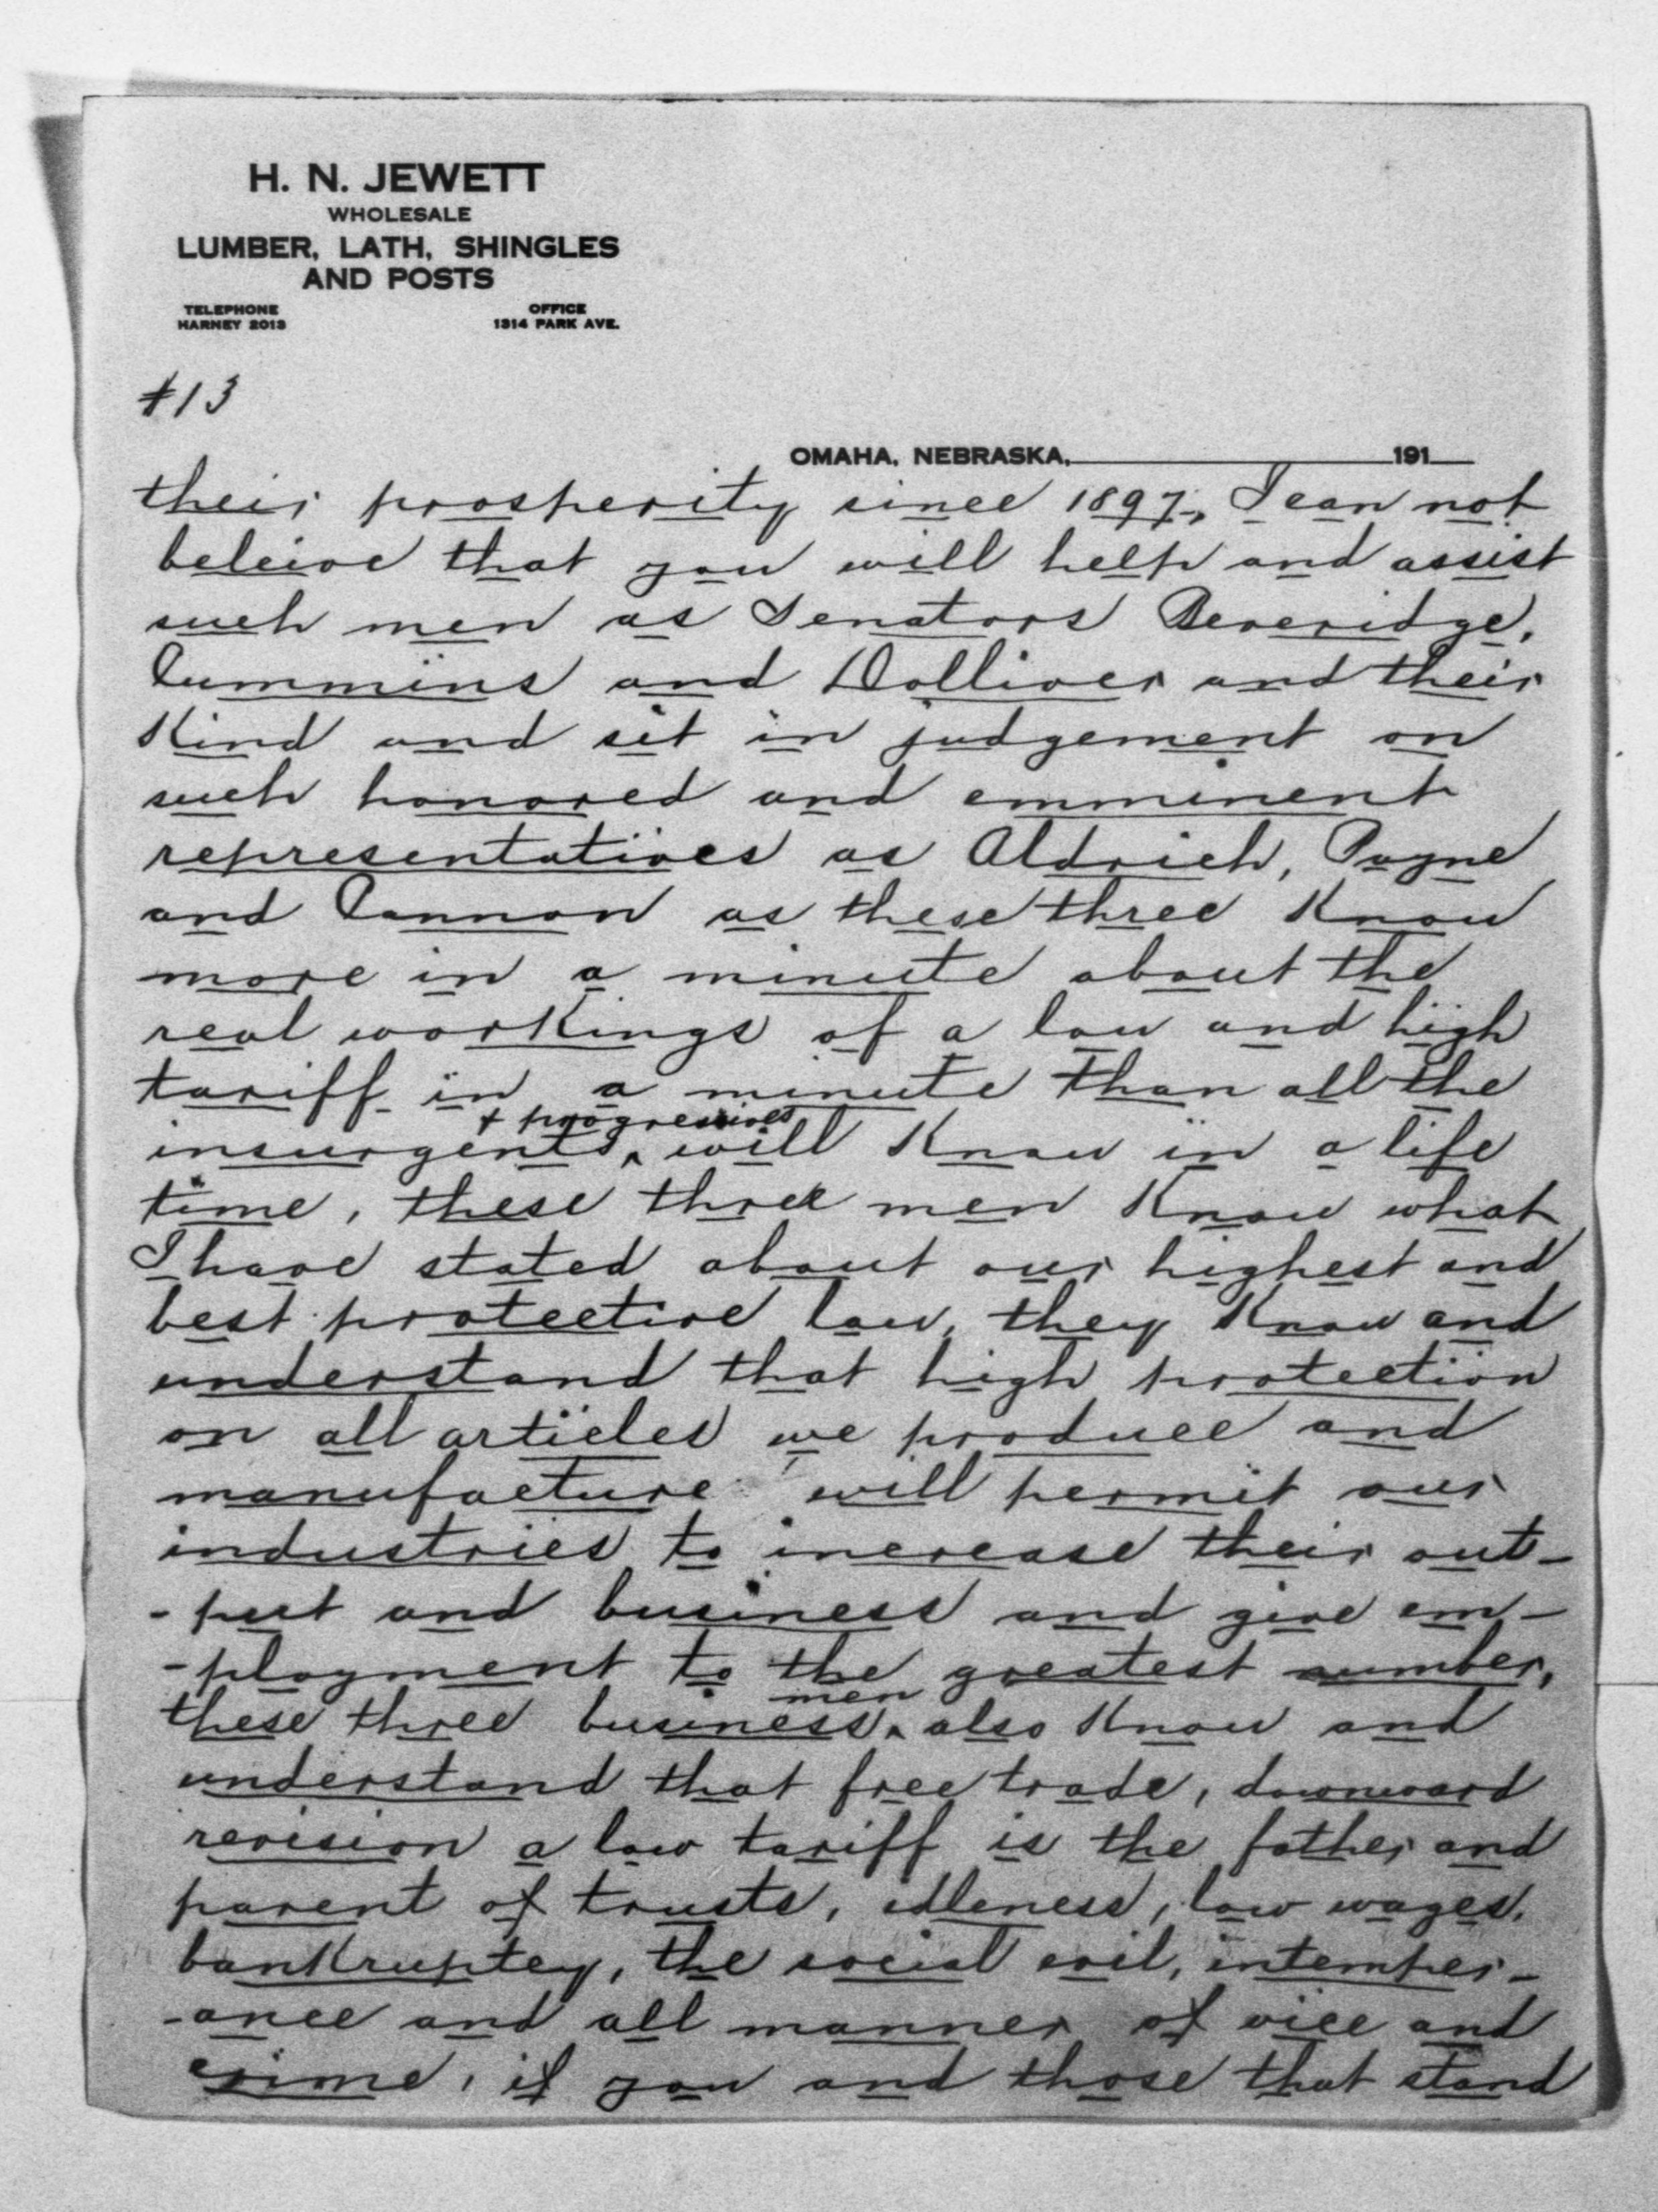 H. N. JEWETT
WHOLESALE
LUMBER, LATH, SHINGLES
AND POSTS
TELEPHONE OFFICE
HARNEY 2013 1314 PARK AVE.
#13
OMAHA, NEBRASKA, 191
their prosperity since 1897, I can not
beleive that you will help and assist
such men as Senators Beveridge,
Cummins and Dolliver and their
Kind and sit in judgement on
such honored and emminent
representatives as Aldrich, Payne
and Cannon as these three Know
more in a minute about the
real workings of a low and high
tariff in a minute than all the
+ progressives
insurgents ^ will Know in a life
time, these three men Know what
I have stated about our highest and
best protective law, they Know and
understand that high protection
on all articles we produce and
manufacture will permit our
industries to increase their out-
-put and business and give em-
-ployment to the greatest number,
men
these three business ^ also Know and
understand that free trade, downward
revision a low tariff is the father and
parent of trusts, idleness, low wages,
bankruptcy, the social evil, intemper-
-ance and all manner of vice and
crime, if you and those that stand